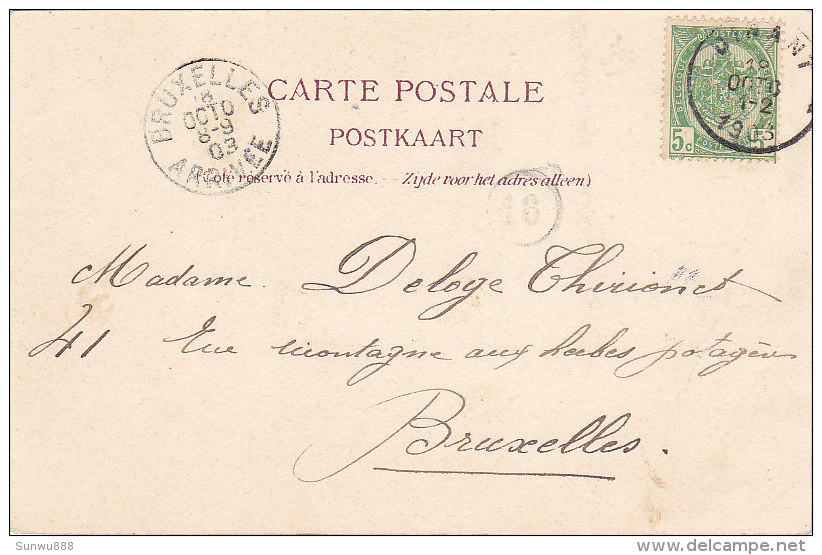 CARTE POSTALE
POSTKAART
(Côté réservé à l'adresse. — Zijde voor het adres alleen)
BRUXELLES
8
OCTO
8-9
03
ARRIVÉE
DINANT
8
OCTO
1-2
1903
POSTES
BELGIQUE
5c
5
16
Madame Deloge Thirionet
41 Rue montagne aux herbes potagères
Bruxelles.
Sunwu888
delcampe.net